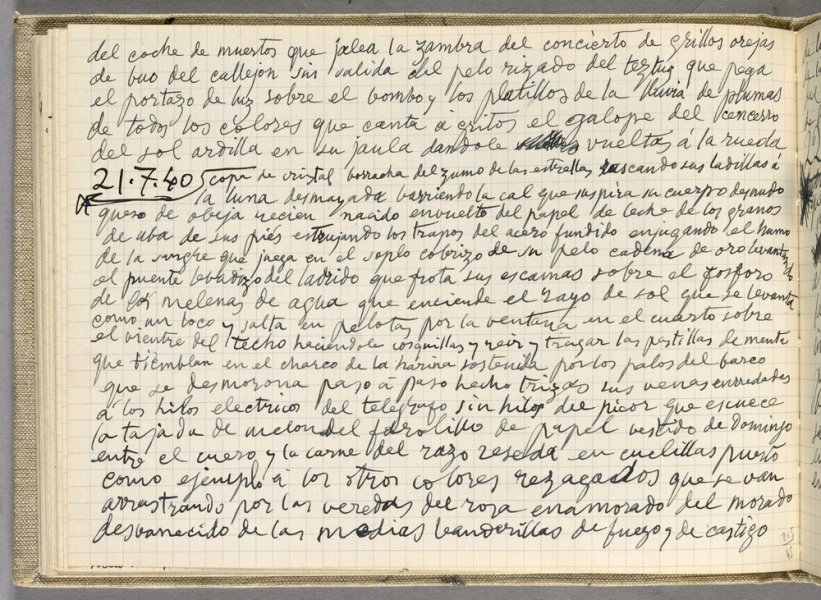 del coche de muertos que jalea la zambra del concierto de grillos orejas
de buo del callejon sin salida del pelo rizado del teztuz que pega
el portazo de luz sobre el bombo y los platillos de la lluvia de plumas
de todos los colores que canta á gritos el galope del cencerro
del sol ardilla en su jaula dandole vueltas á la rueda
21.7.40 copa de cristal borracha del zumo de las estrellas rascando sus ladillas á
la luna desmayada barriendo la cal que suspira su cuerpo desnudo
queso de obeja recien nacido envuelto del papel de leche de los granos
de uba de sus piés estrujando los trapos del acero fundido enjugando el humo
de la sangre que juega en el soplo cobrizo de su pelo cadena de oro levantando
el puente lebadizo del ladrido que frota sus escamas sobre el fosforo
de las melenas de agua que enciende el rayo de sol que se levanta
como un loco y salta en pelotas por la ventana en el cuarto sobre
el vientre del techo haciendole cosquillas y reir y tragar las pastillas de menta
que tiemblan en el charco de la harina sostenida por los palos del barco
que se desmorona paso á paso hecho trizas sus venas enredadas
á los hilos electricos del telegrafo sin hilos del picor que escuece
la tajada de melon del farolillo de papel vestido de domingo
entre el cuero y la carne del razo reseda en cuclillas puesto
como ejemplo á los otros colores rezagados que se van
arrastrando por las veredas del rosa enamorado del morado
desvanecido de las medias banderillas de fuego y de castigo